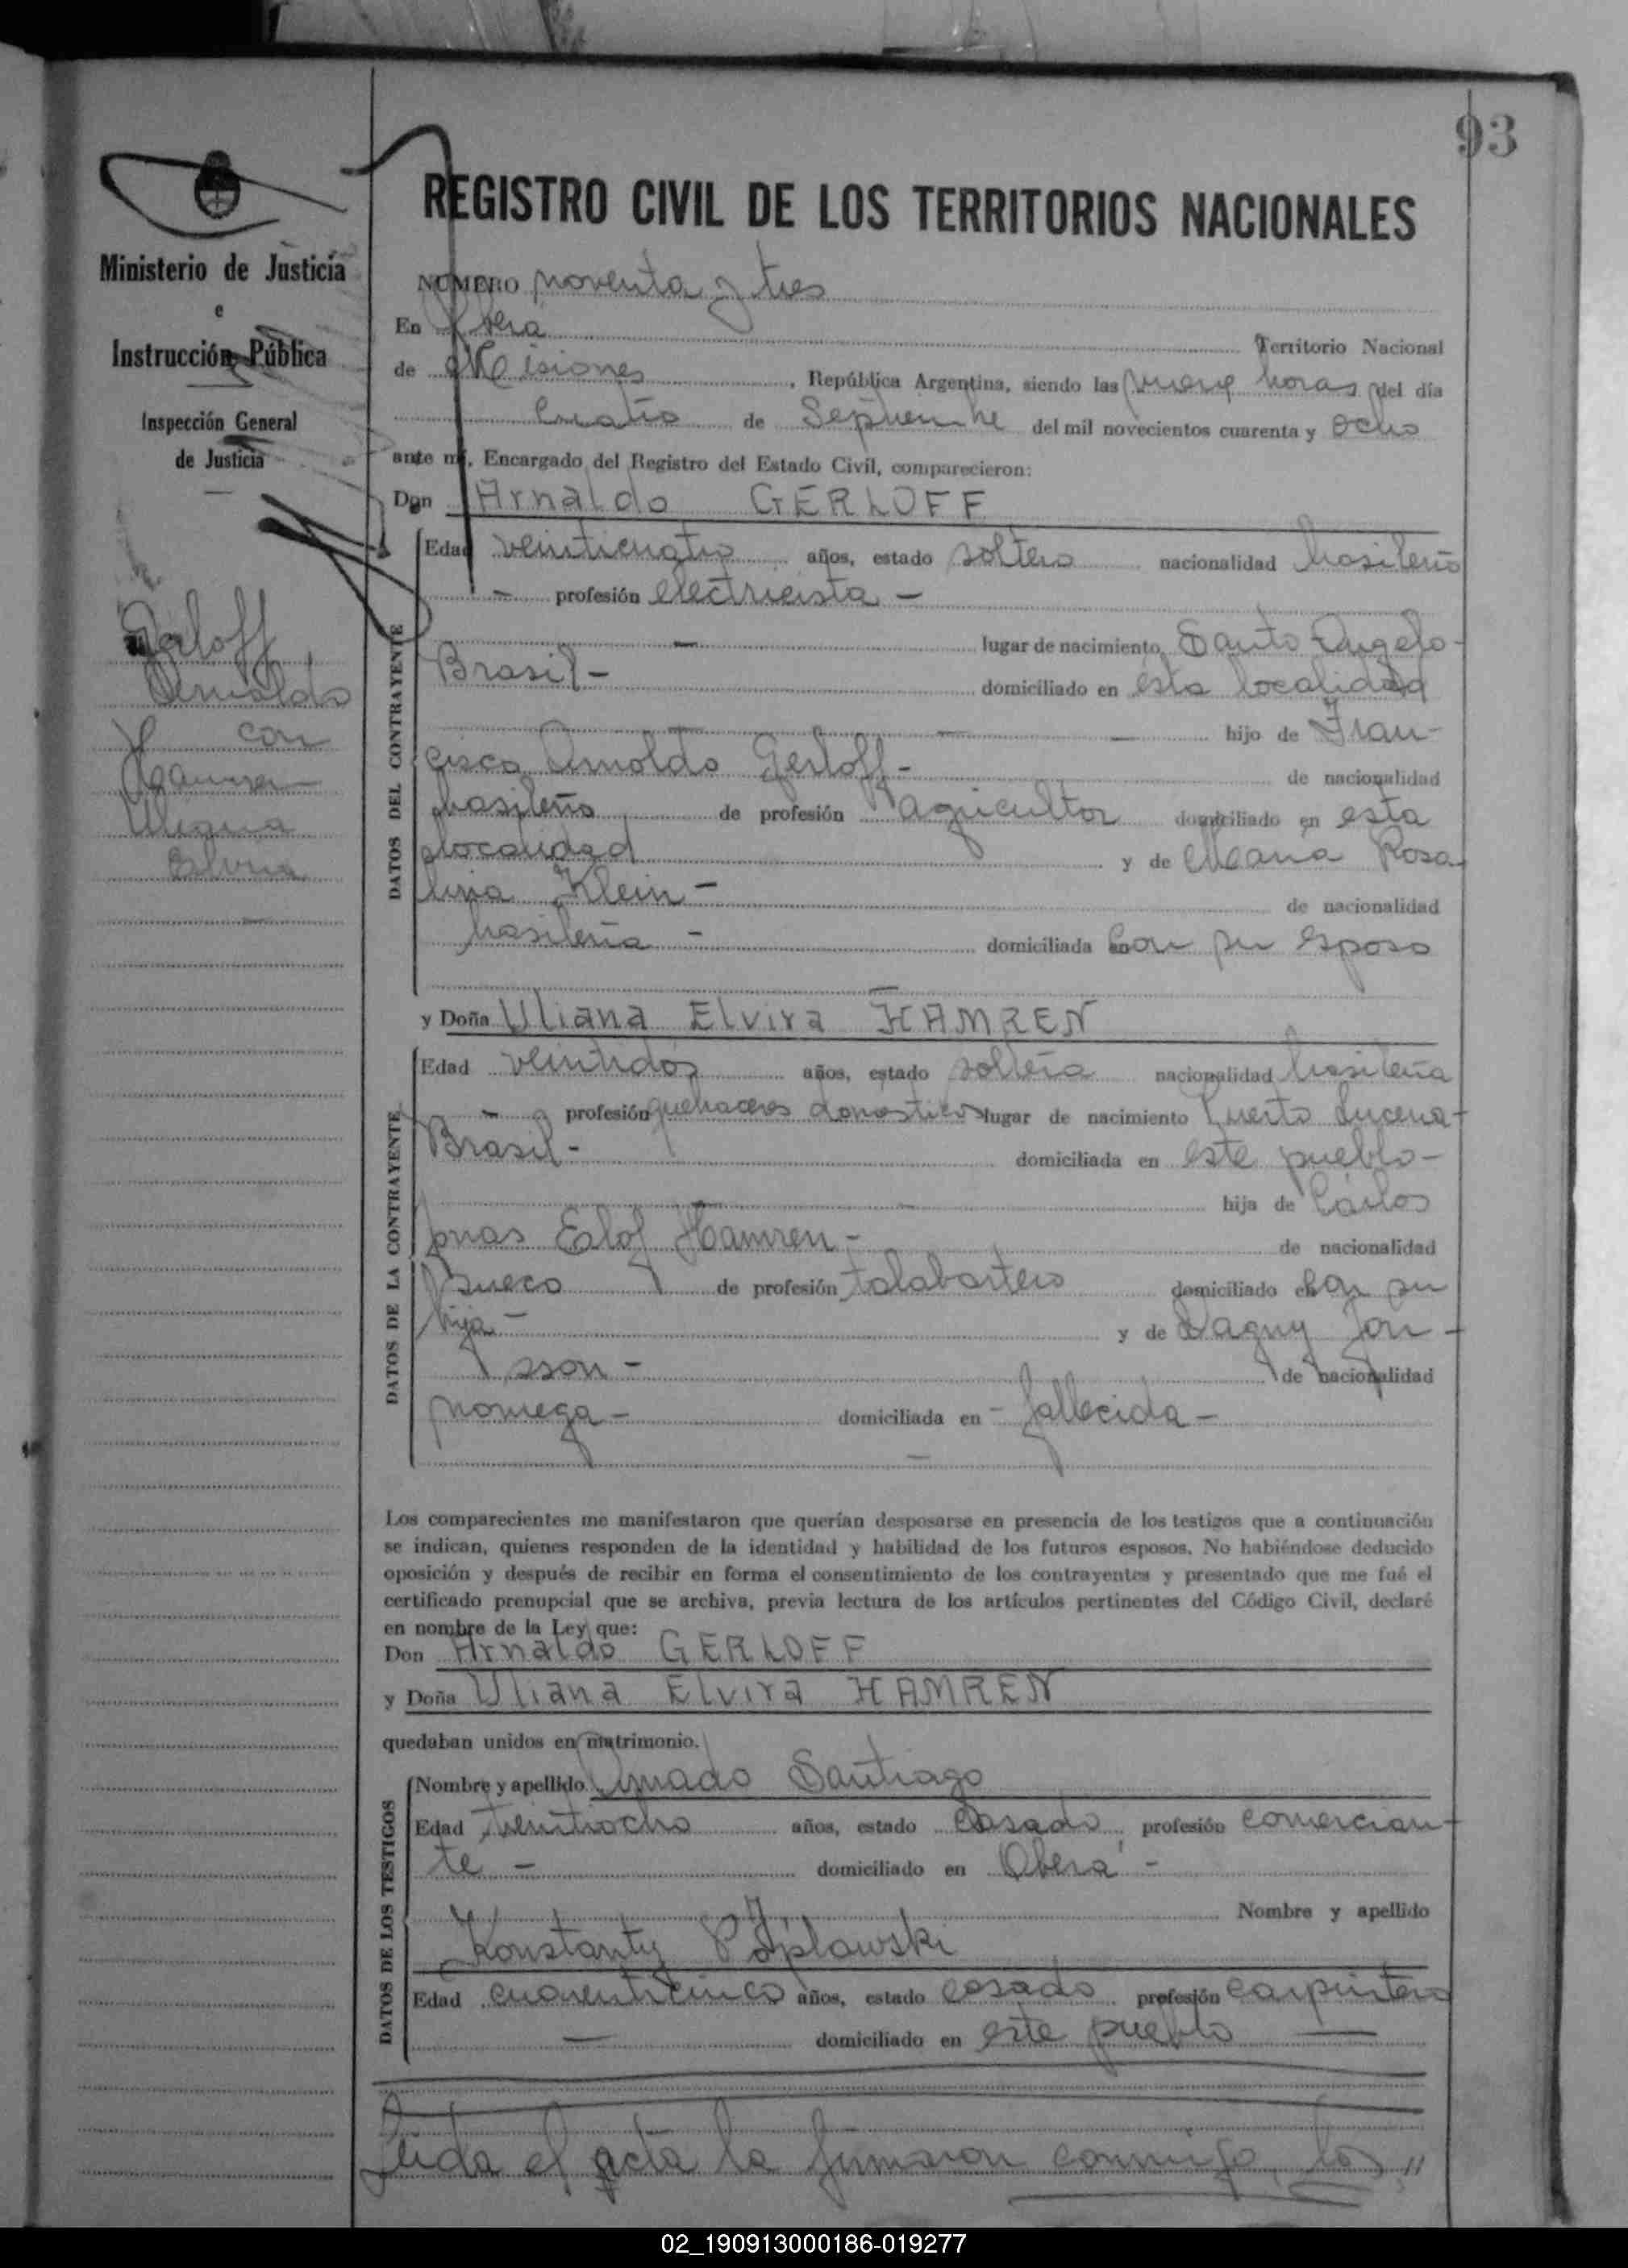 93
Ministerio de Justicia
e
Instrucción Pública
Inspección General
de Justicia
Gerloff
Arnaldo
con
Hamren
Uliana
Elvira
REGISTRO CIVIL DE LOS TERRITORIOS NACIONALES
NÚMERO noventa y tres
En Oberá Territorio Nacional
de Misiones, República Argentina, siendo las nueve horas del día
Cuatro de Septiembre del mil novecientos cuarenta y Ocho
ante mí, Encargado del Registro del Estado Civil, comparecieron:
Don Arnaldo GERLOFF
DATOS DEL CONTRAYENTE
Edad veinticuatro años, estado soltero nacionalidad brasileño
- profesión electricista -
- lugar de nacimiento Santo Angelo-
Brasil- domiciliado en ésta localidad
- hijo de Fran-
cisco Arnoldo Gerloff- de nacionalidad
brasileño de profesión agricultor domiciliado en esta
localidad y de Maria Rosa-
lina Klein- de nacionalidad
brasileña - domiciliada con su esposo
y Doña Uliana Elvira HAMREN
DATOS DE LA CONTRAYENTE
Edad veintidós años, estado soltera nacionalidad brasileña
- profesión quehaceres domésticos lugar de nacimiento Puerto Lucena-
Brasil- domiciliada en este pueblo-
hija de Carlos
Jonas Elof Hamren- de nacionalidad
sueco de profesión talabartero domiciliado con su
hija- y de Dagny Jon-
sson- de nacionalidad
noruega- domiciliada en - fallecida-
Los comparecientes me manifestaron que querían desposarse en presencia de los testigos que a continuación
se indican, quienes responden de la identidad y habilidad de los futuros esposos. No habiéndose deducido
oposición y después de recibir en forma el consentimiento de los contrayentes y presentado que me fué el
certificado prenupcial que se archiva, previa lectura de los artículos pertinentes del Código Civil, declaré
en nombre de la Ley que:
Don Arnaldo GERLOFF
y Doña Uliana Elvira HAMREN
quedaban unidos en matrimonio.
DATOS DE LOS TESTIGOS
Nombre y apellido Amado Santiago
Edad años, estado casado profesión comercian-
te - domiciliado en Oberá -
Nombre y apellido
Konstanty Poplawski
Edad cuarenticinco años, estado casado profesión carpintero
- domiciliado en este pueblo -
Leida el acta la firmaron conmigo, los,,
02_190913000186-019277